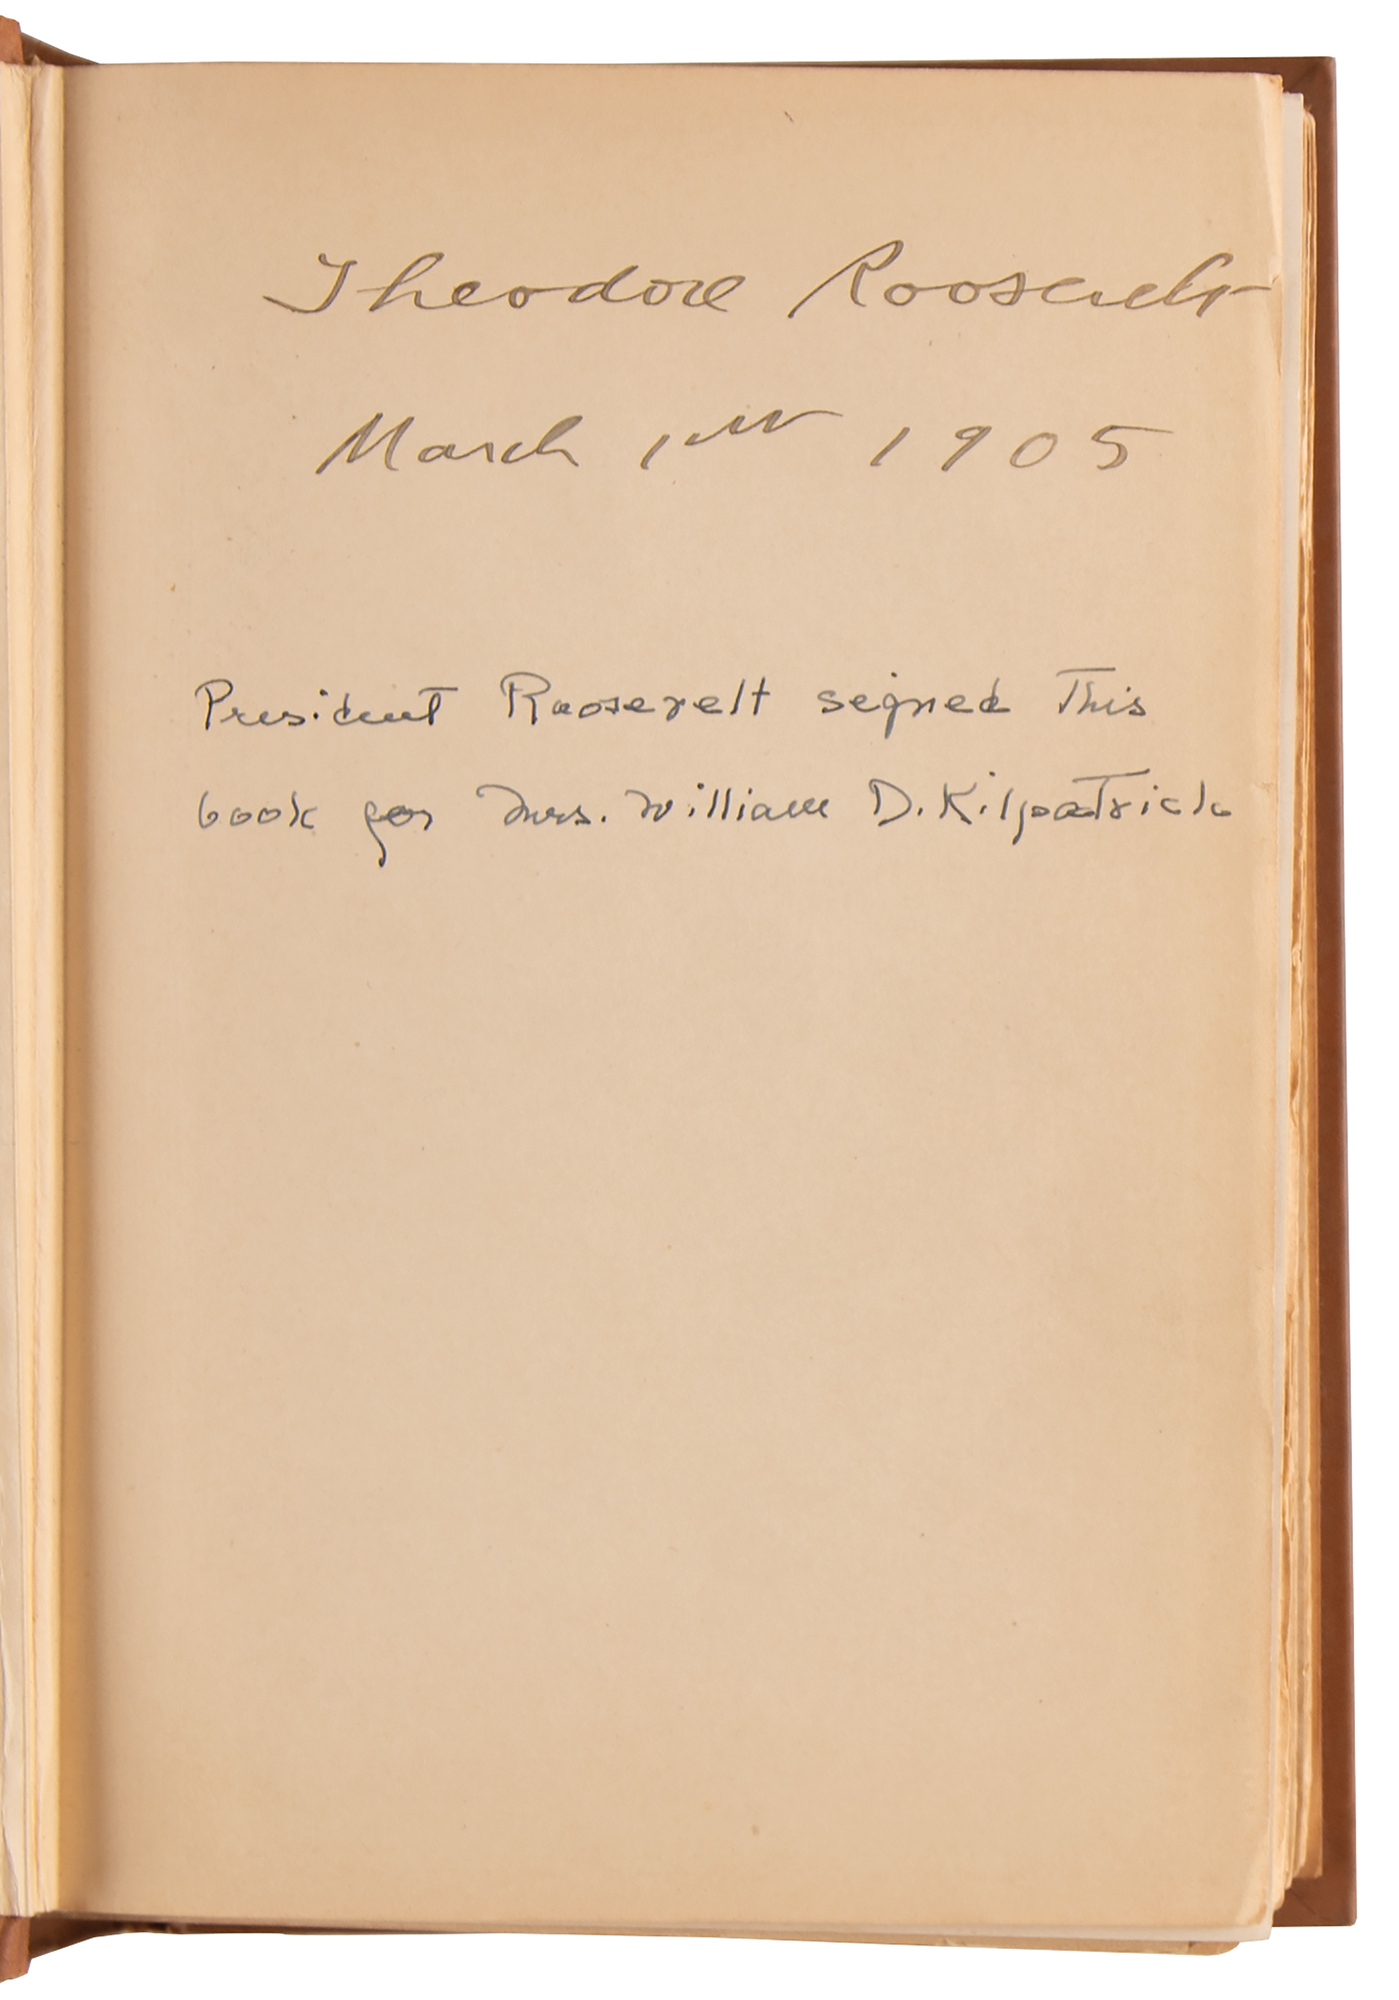 Theodore Roosevelt
March 1st 1905
President Roosevelt signed this
book for Mrs. William D. Kilpatrick